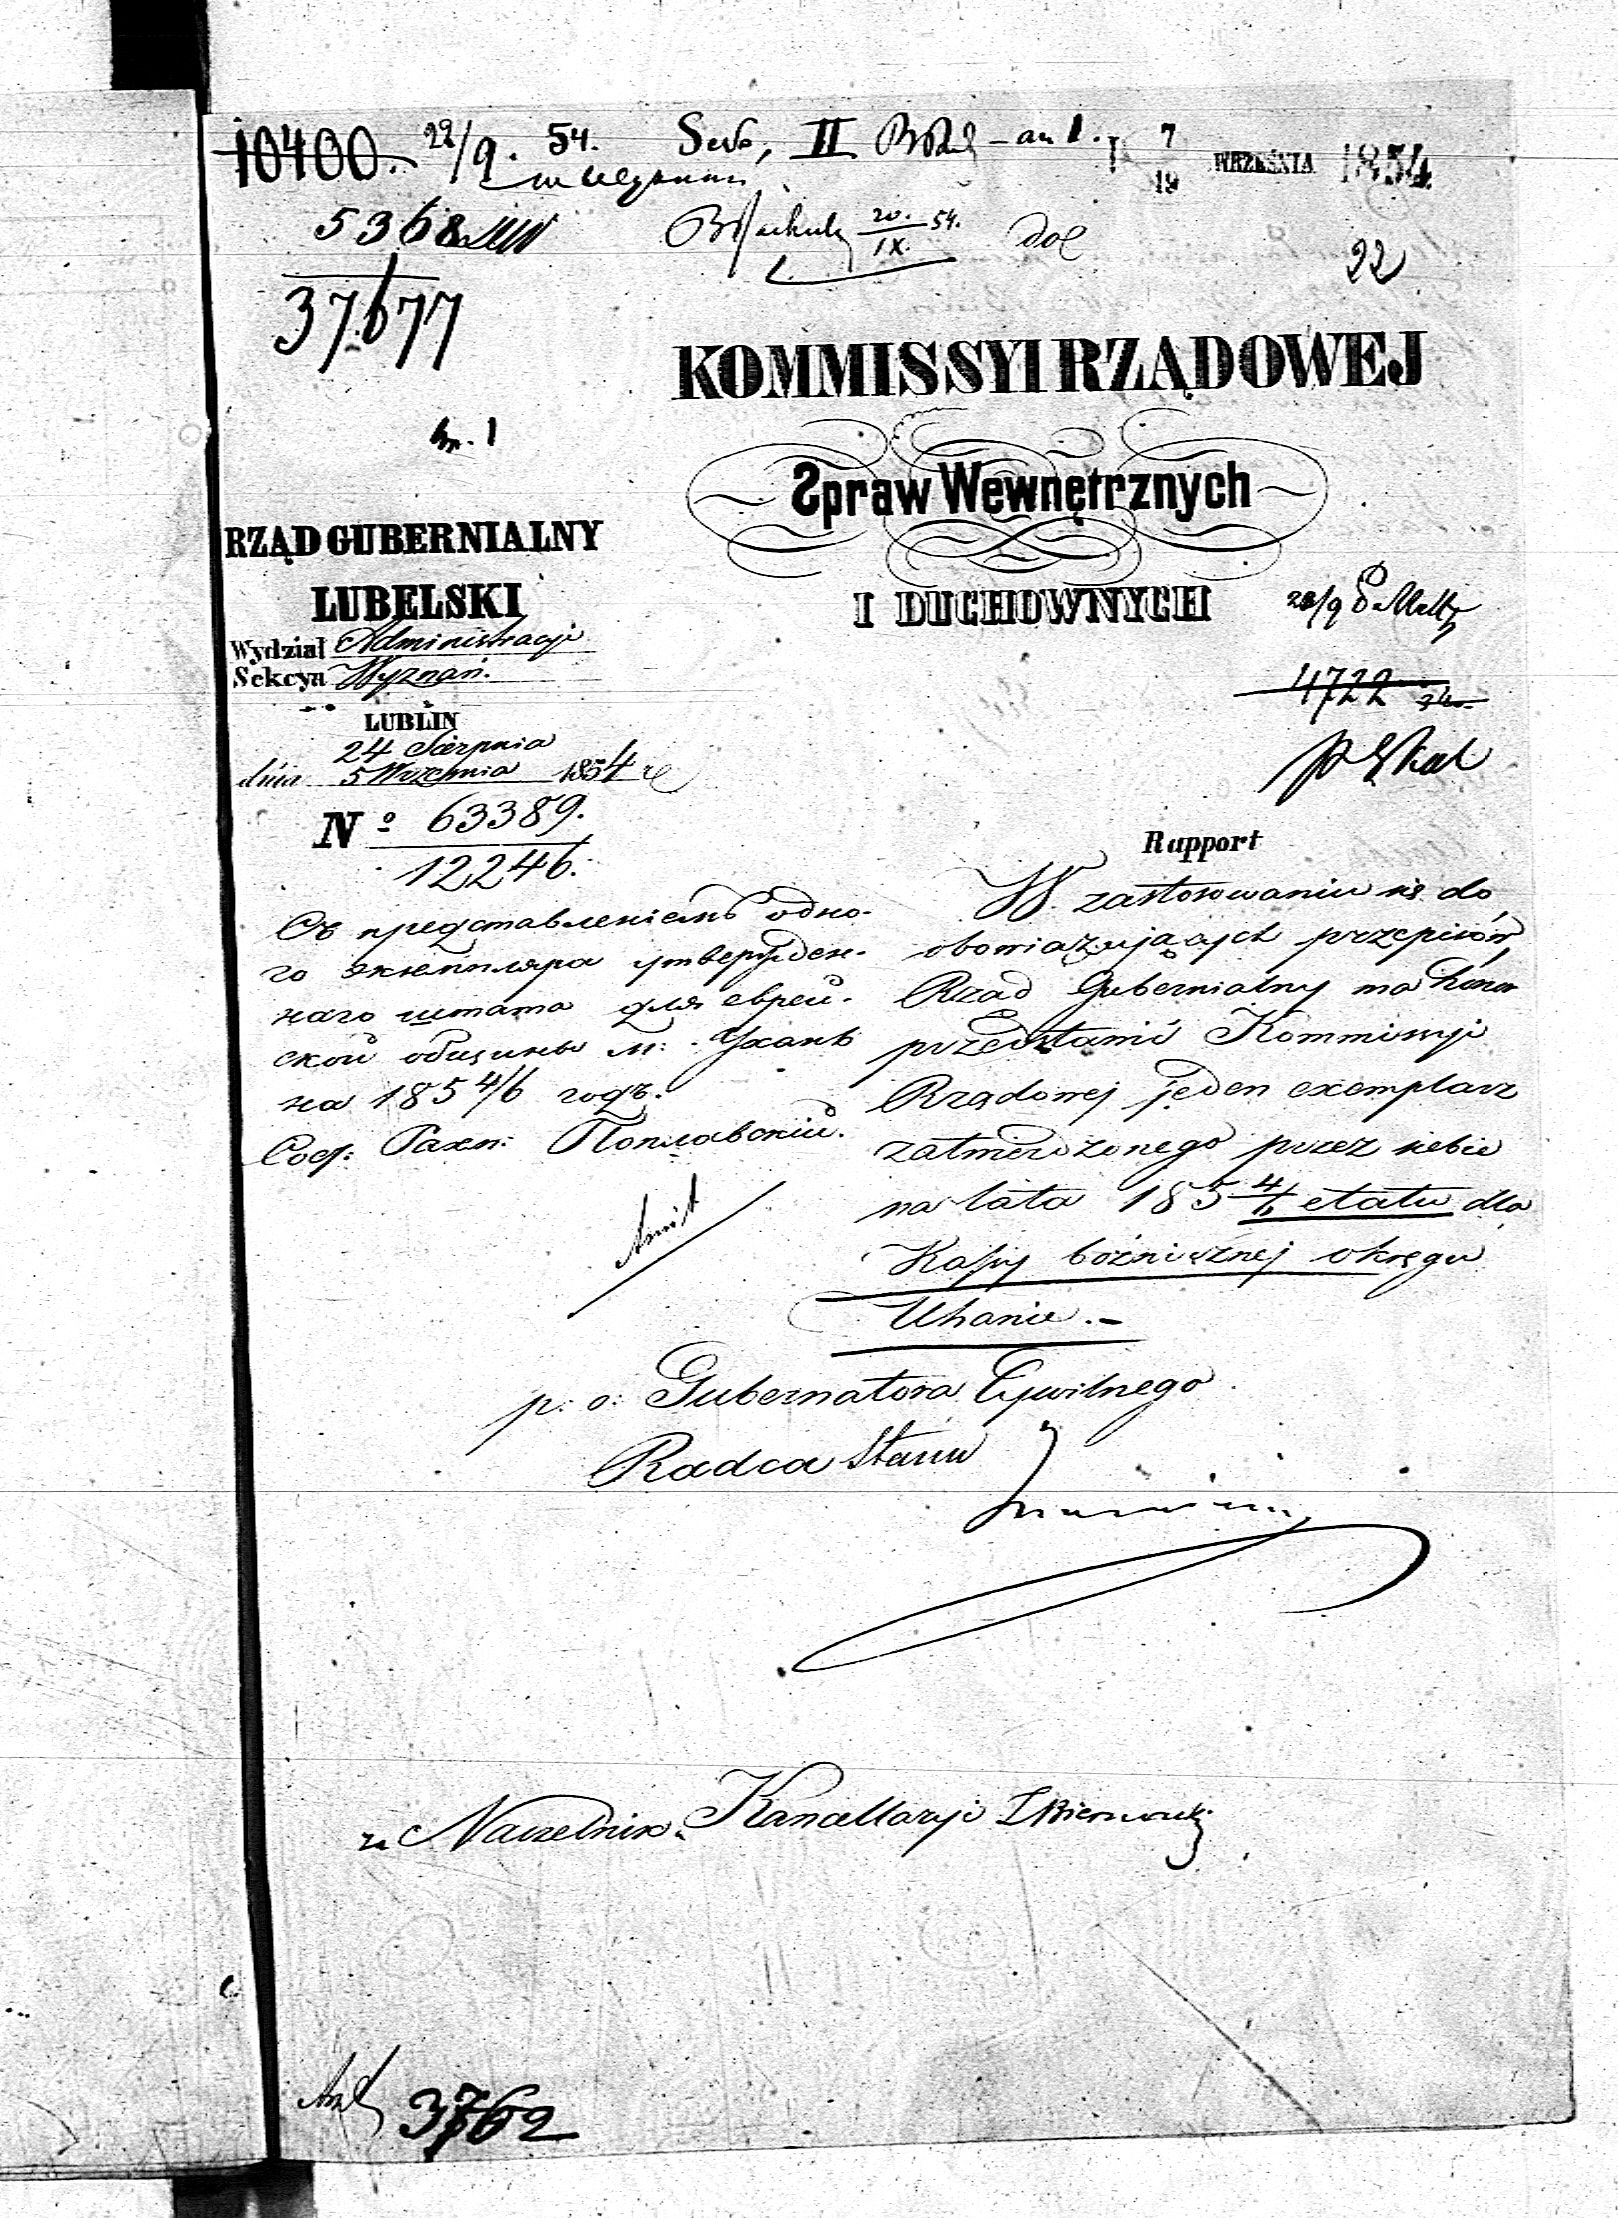 10400. 22/9. 54. II 7/19 WRZEŚNIA 1854
5368
37677
20./IX. 54.
22
KOMMISSYI RZĄDOWEJ
Spraw Wewnętrznych
I DUCHOWNYCH
RZĄD GUBERNIALNY
LUBELSKI
Wydział Administracyi
Sekcya Wyznań.
LUBLIN
24 Sierpnia
dnia 5 Wrzesnia 1854 r
No 63389.
12246.
28/9
4722
Съ представленіемъ одно-
го экземпляра утвержден-
наго штата для еврей-
ской общины м: Ухане
на 1854/6 годъ.
Сов: Поплавскій.
Rapport
W zastosowaniu się do
obowiązujących przepisów,
Rząd Gubernialny ma honor
przedstawić Kommissyi
Rządowej jeden exemplarz
zatwierdzonego przez siebie
na lata 1854/6 etatu dla
Kassy bóżnicznej okręgu
Uhanie.-
p: o: Gubernatora Cywilnego
Radca Stanu
za Naczelnika Kancellaryi
3762